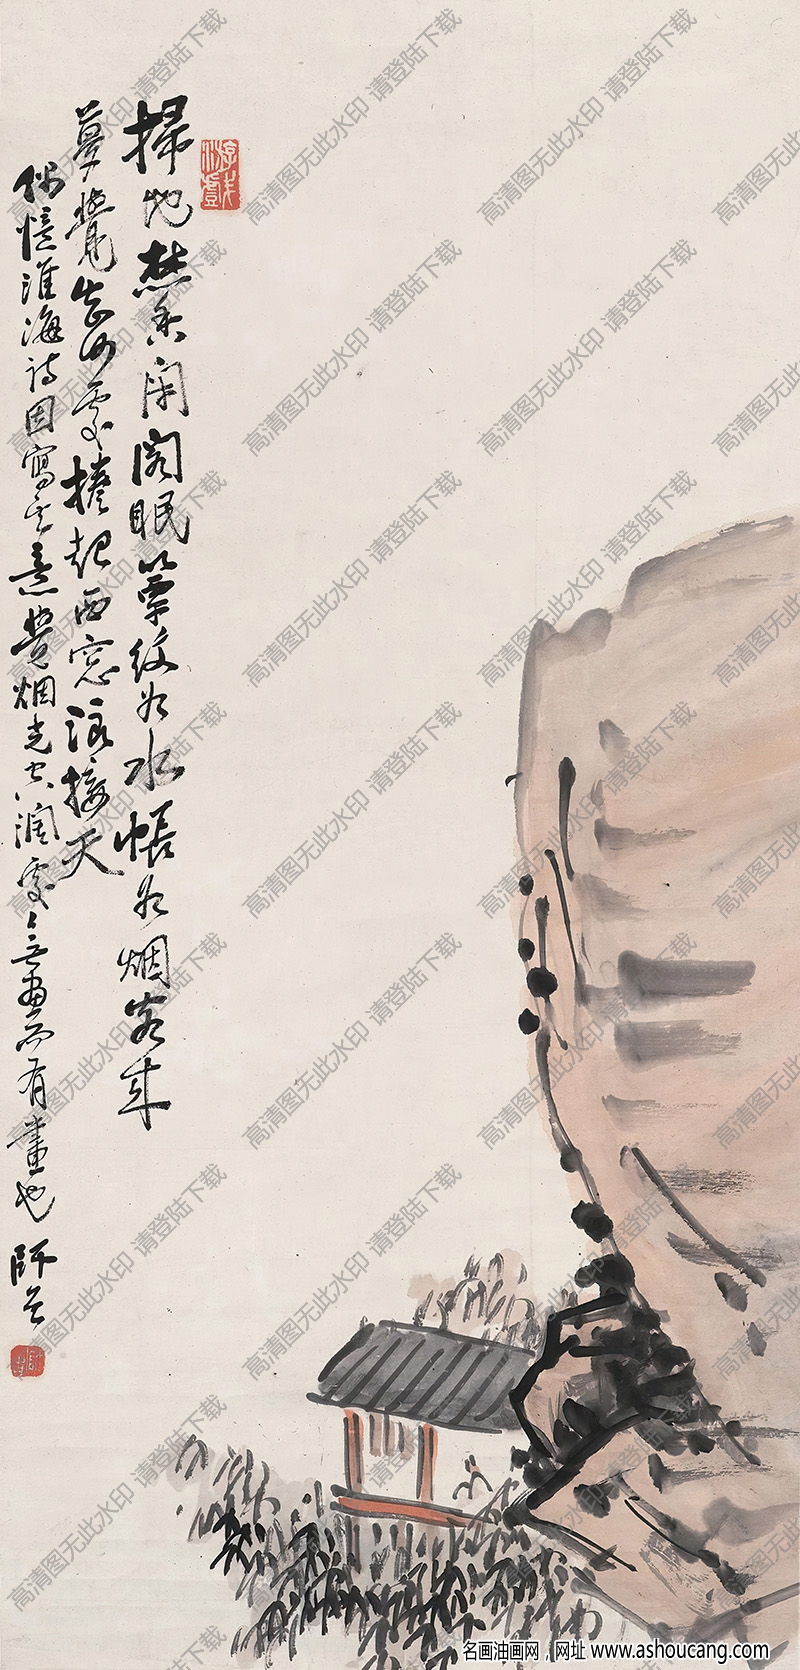 掃地焚香閉閣眠簟紋如水帳如烟客來
夢覺知何處捲起西窗浪接天
偶憶淮海詩因寫其意烟光空濶處無畫而有畫也
高清图无此水印 请登陆下载
名画油画网，网址 www.ashoucang.com